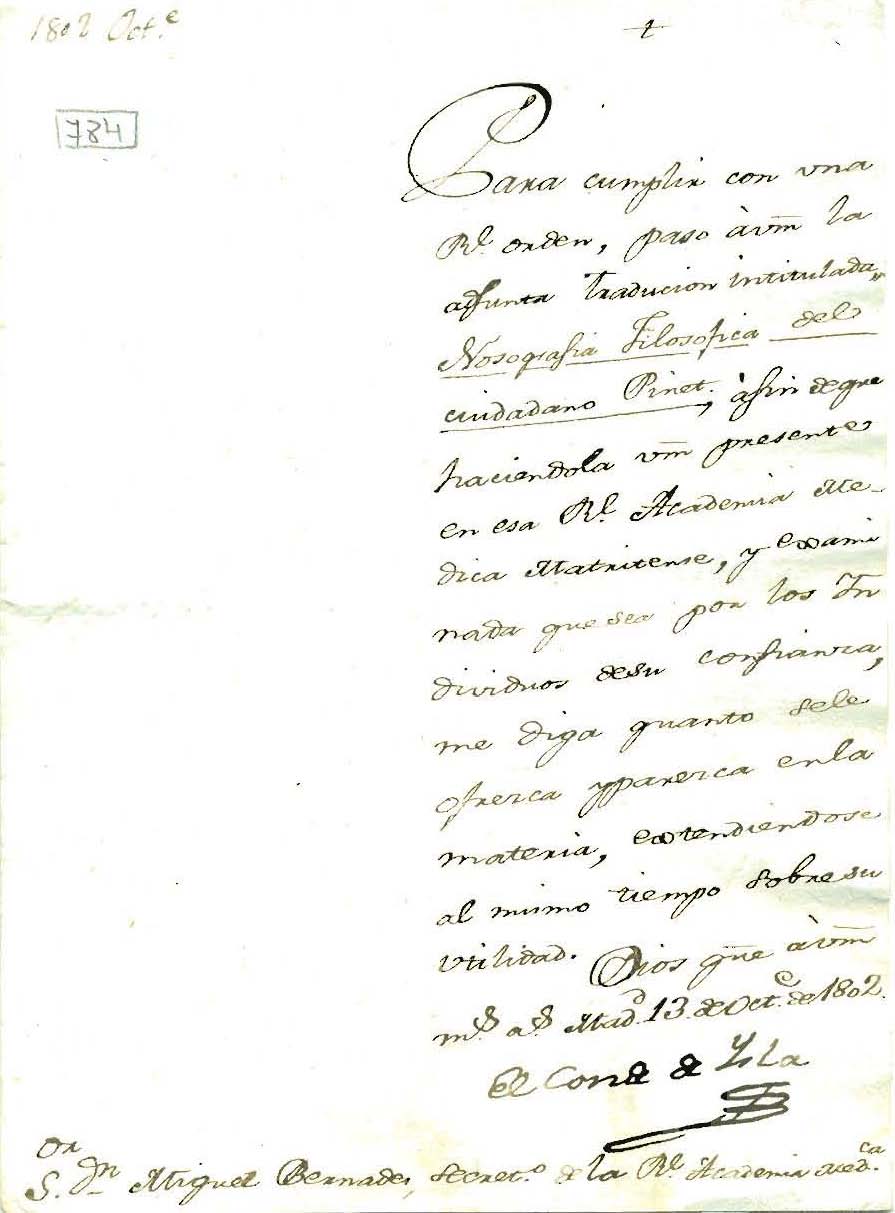 1802 Oct.e
784
Para cumplir con vna
Rl. orden, paso à vm la
adjunta Traducion intitulada,,
Nosografia Filosofica del
ciudadano Pinet, à fin de que
haciendola vm presente
en esa Rl. Academia Me-
dica Matritense, y exami
nada que sea por los In
dividuos de su confianza,
me diga quanto se le
ofrezca y parezca en la
materia, extendiendose
al mismo tiempo sobre su
vtilidad. Dios gue à vm
ms. as. Madd. 13. de Oct.e de 1802.
El Conde de Ysla
S.or Dn Miguel Bernades, secret.o de la Rl. Academia Med.ca